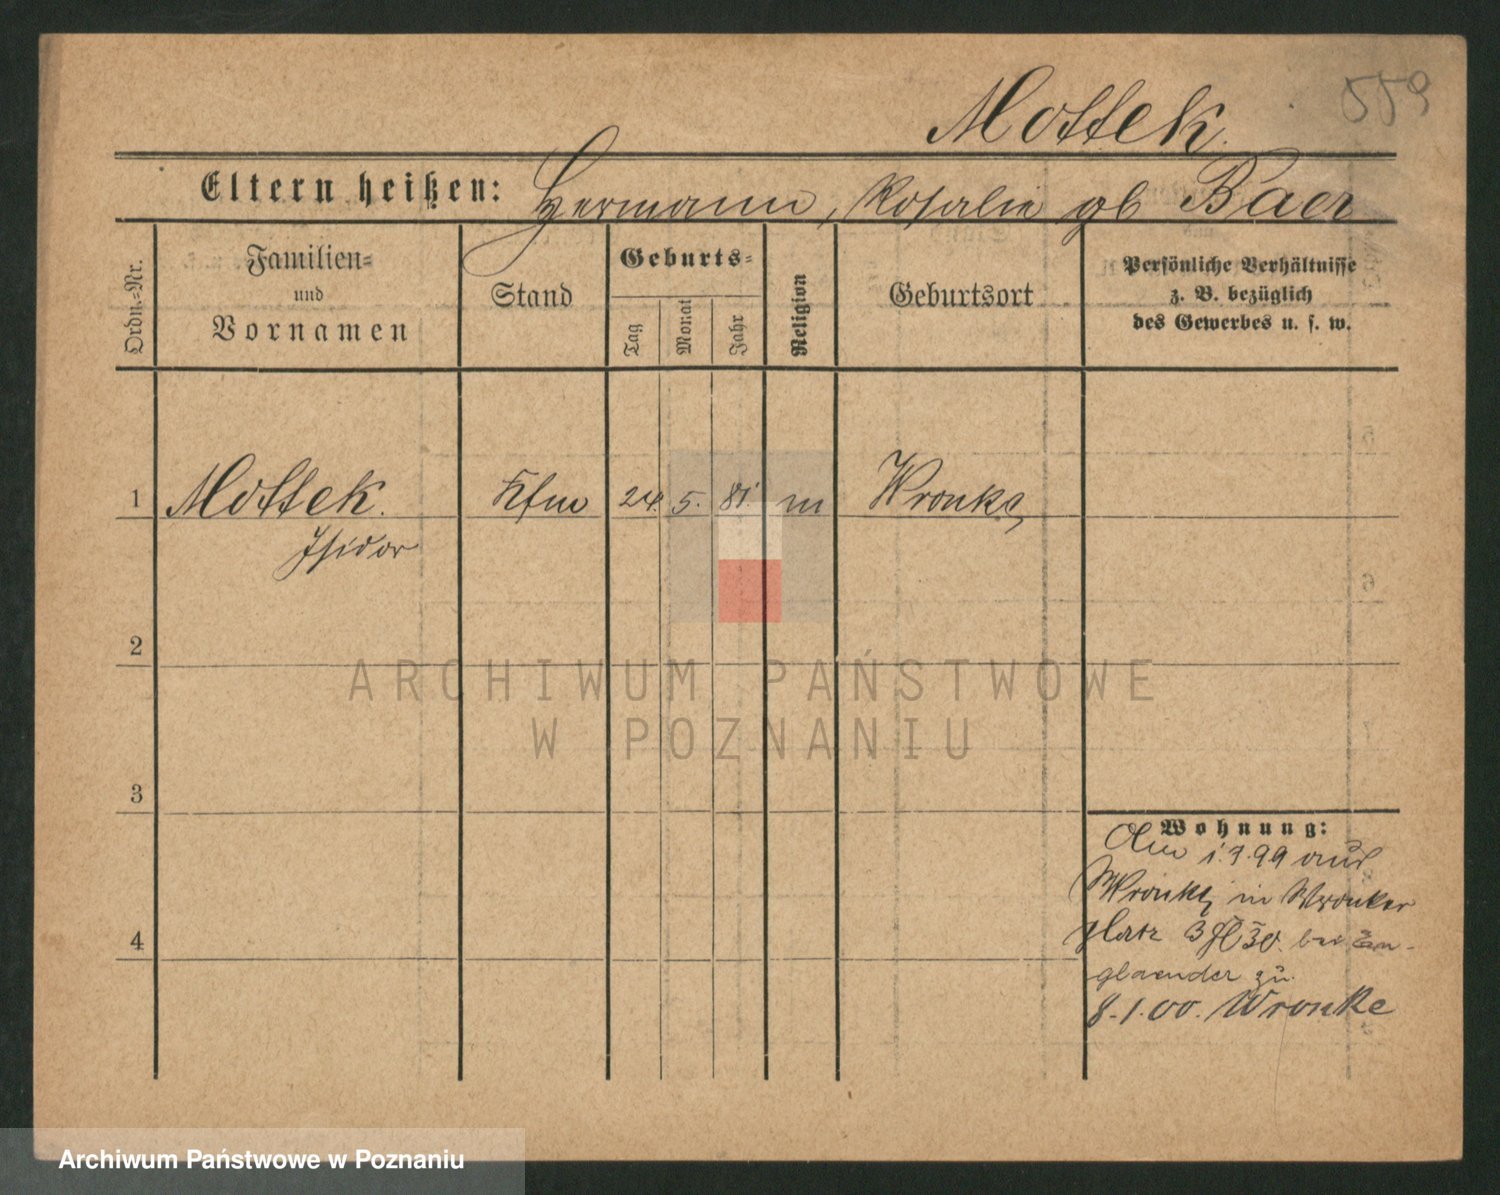 559
Mottek.
Eltern heißen: Hermann, Rosalie gb Baer
Ordn.=Nr.
Familien=
und
Vornamen
Stand
Geburts=
Tag
Monat
Jahr
Religion
Geburtsort
Persönliche Verhältnisse
z. B. bezüglich
des Gewerbes u. s. w.
1 Mottek. Kfm 24. 5. 81. m Wronke,
Isidor
2
3
4
Wohnung:
1.7.99 aus
Wronke, in Wronker
platz 3 bei En-
glaender zu
8.1.00. Wronke
5
6
7
ARCHIWUM PAŃSTWOWE
W POZNANIU
Archiwum Państwowe w Poznaniu